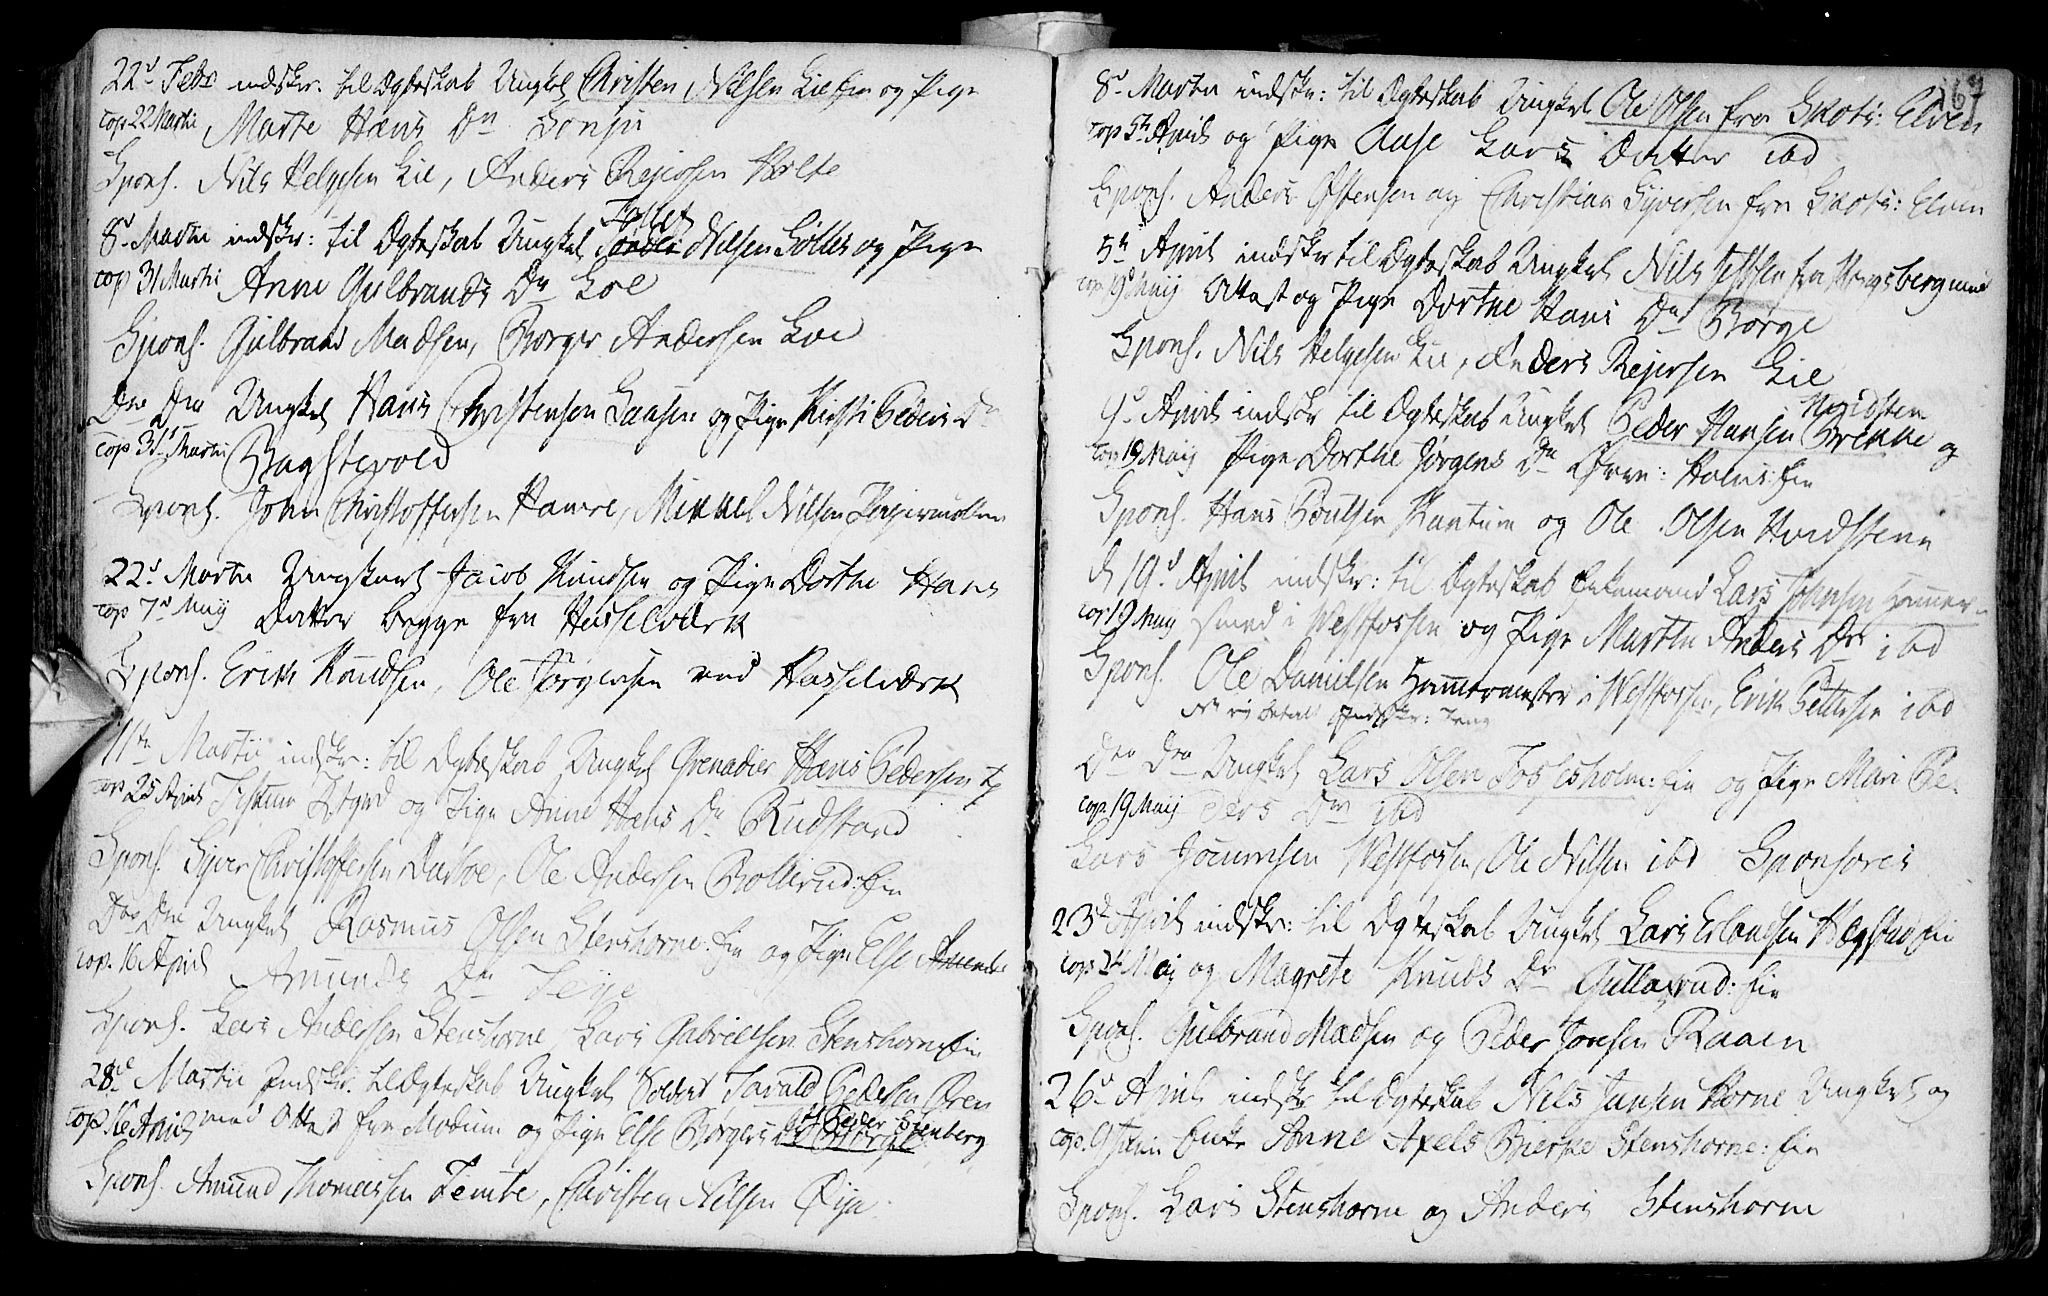 22d Febr indskr: til Ægteskab Ungkl Christen Nilsen Lie Eie og Pige
cop 22 Martii Marte Hans Dn Sonju
Spons. Nils Helgesen Lie, Anders Rejersen Holte
8d Martii indskr: til Ægteskab Ungkl Tollef Nilsen og Pige
cop 31 Martii Anne Gulbrands Dn Loe
Spons. Gulbrand Madsen, Børger Andersen Loe
Dno Dno Ungkl Hans Christensen og Pige Kirsti Peders Dn
cop 31t Martii Bagstevold
Spons. John Christoffersen Hamre, Mikkel Nilsen
22d Martii Ungkarl Jacob Knudsen og Pige Dorthe Hans
cop 7d Maij Datter begge fra Hasselværk
Spons. Erik Knudsen, Ole Jørgensen ved Hasselværk
11te Martii indskr: til Ægteskab Ungkl Grenadier Hans Pedersen
cop 25 April og Pige Anne Hans Dn Rudstand
Spons. Syver Christoffersen Darboe, Ole Andersen Bollerud: Eie
Dno Dno Ungkl Rasmus Olsen Stenshorne: Eie og Pige Else
cop. 16 April Amunds Dn Teije
Spons. Lars Andersen Stenshorne, Lars Gabrielsen Stenshorne Eie
28d Martii Indskr. til Ægteskab Ungkl Soldat Tarald Pedersen Øren
cop 16 April med Attest fra Modum og Pige Else Børgers Dn
Spons. Amund Thomessen Temte, Christen Nilsen Øya
167
8d Martii indskr: til Ægteskab Ungkl Ole Olsen fra Skots: Elven
cop 5te April og Pige Aase Lars Datter ibd
Spons. Anders Østensen og Christian Syversen fra Skots: Elven
5te April indskr til Ægteskab Ungkl Nils Jepsen fra Kongsberg med
cop 19d Maij Attest og Pige Dorthe Hans Dn Børge
Spons. Nils Helgesen Lie, Anders Rejersen Lie
9d April indskr til Ægteskab Ungkl Peder Hansen Hvidsten Brekke og
cop 19 Maij Pige Dorthe Jørgens Dn Øvre: Holms: Eie
Spons. Hans Poulsen Kantum og Ole Olsen Hvidstene
d 19d April indskr: til Ægteskab Enkemand Lars Johnsen Hammer-
cop 19 Maij smed i Vestfossen og Pige Marthe Anders Dn ibd
Spons. Ole Danielsen Hammermester i Vestfossen, Erik Pettersen ibd
betalt Indskr:
Dno Dno Ungkl Lars Olsen Fossesholm: Eie og Pige Mari Pe-
cop. 19 Maij ders Dn ibd
Lars Jocumsen Vestfossen, Ole Nilsen ibd Sponsores
23d April indskr: til Ægteskab Ungkl Lars Erlandsen Hægstad Eie
cop 24 Maij og Magrete Knuds Dn Gullagrud: Eie
Spons. Gulbrand Madsen og Peder Jonsen Raaen
26d April indskr til Ægteskab Nels Jansen Horne Ungkl og
cop. 9 Junii Enke Anne Axels Bierke Stenshorne: Eie
Spons. Lars Stenshorne og Anders Stenshorne